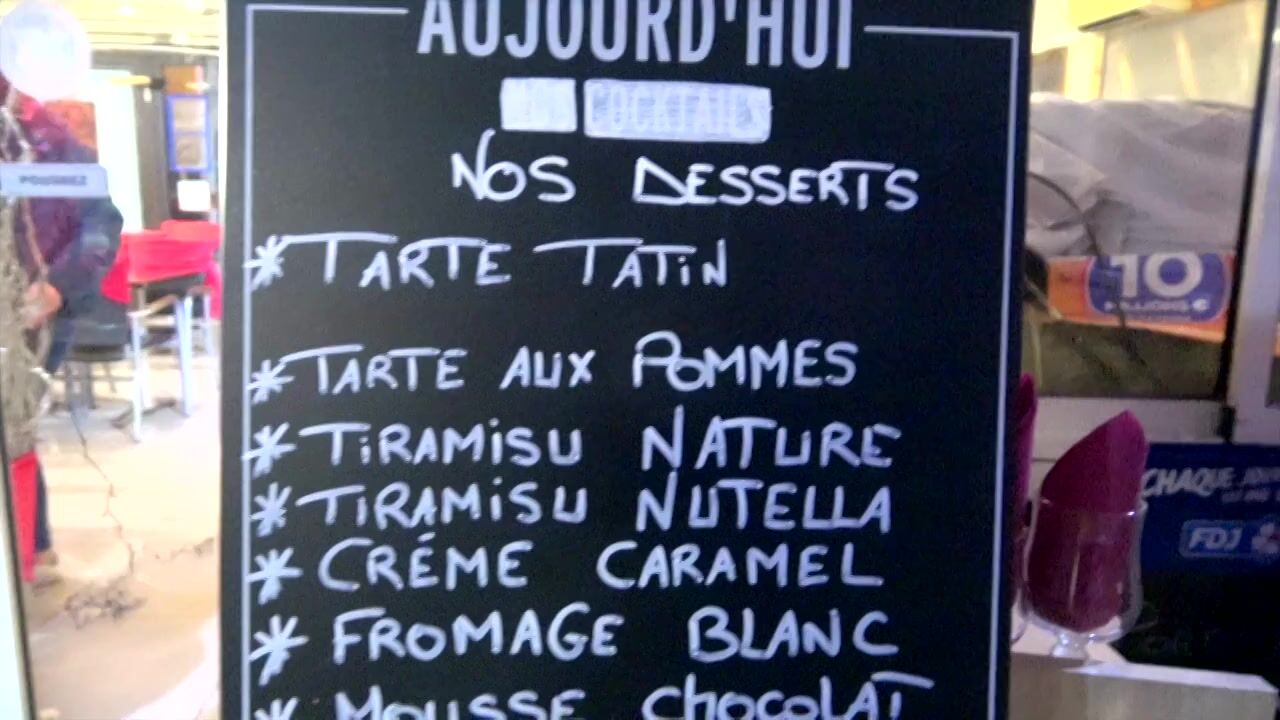 AUJOURD'HUI
NOS DESSERTS
* TARTE TATiN
* TARTE AUX POMMES
* TiRAMiSU NATURE
* TiRAMiSU NUTELLA
* CRÉME CARAMEL
* FROMAGE BLANC
* MOUSSE chocolAT
POUSSEZ
10
MILLIONS€
CHAQUE
FDJ